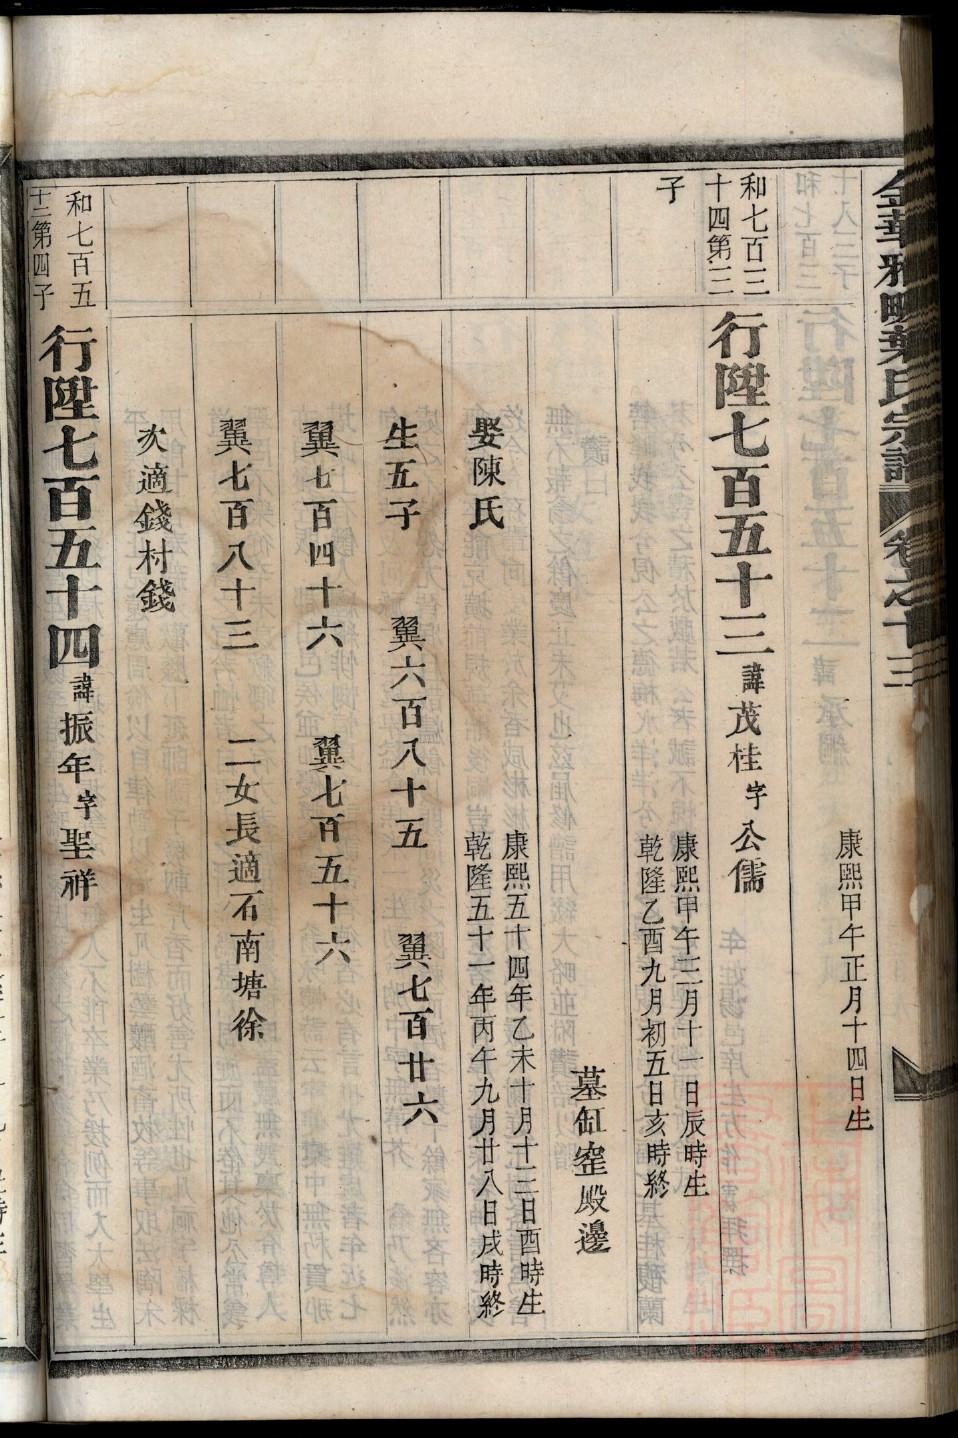 康熙甲午正月十四日生
和七百三
十四第三
子
行陞七百五十三 諱茂桂字公儒
康熙甲午三月十一日辰時生
乾隆乙酉九月初五日亥時終
墓缸窑殿邊
娶陳氏
康熙五十四年乙未十月十三日酉時生
乾隆五十一年丙午九月廿八日戌時終
生五子 翼六百八十五 翼七百廿六
翼七百四十六 翼七百五十六
翼七百八十三 二女長適石南塘徐
次適錢村錢
和七百五
十二第四子
行陞七百五十四 諱振年字聖祥